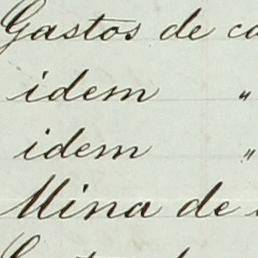 Gastos de
idem "
idem "
Mina de